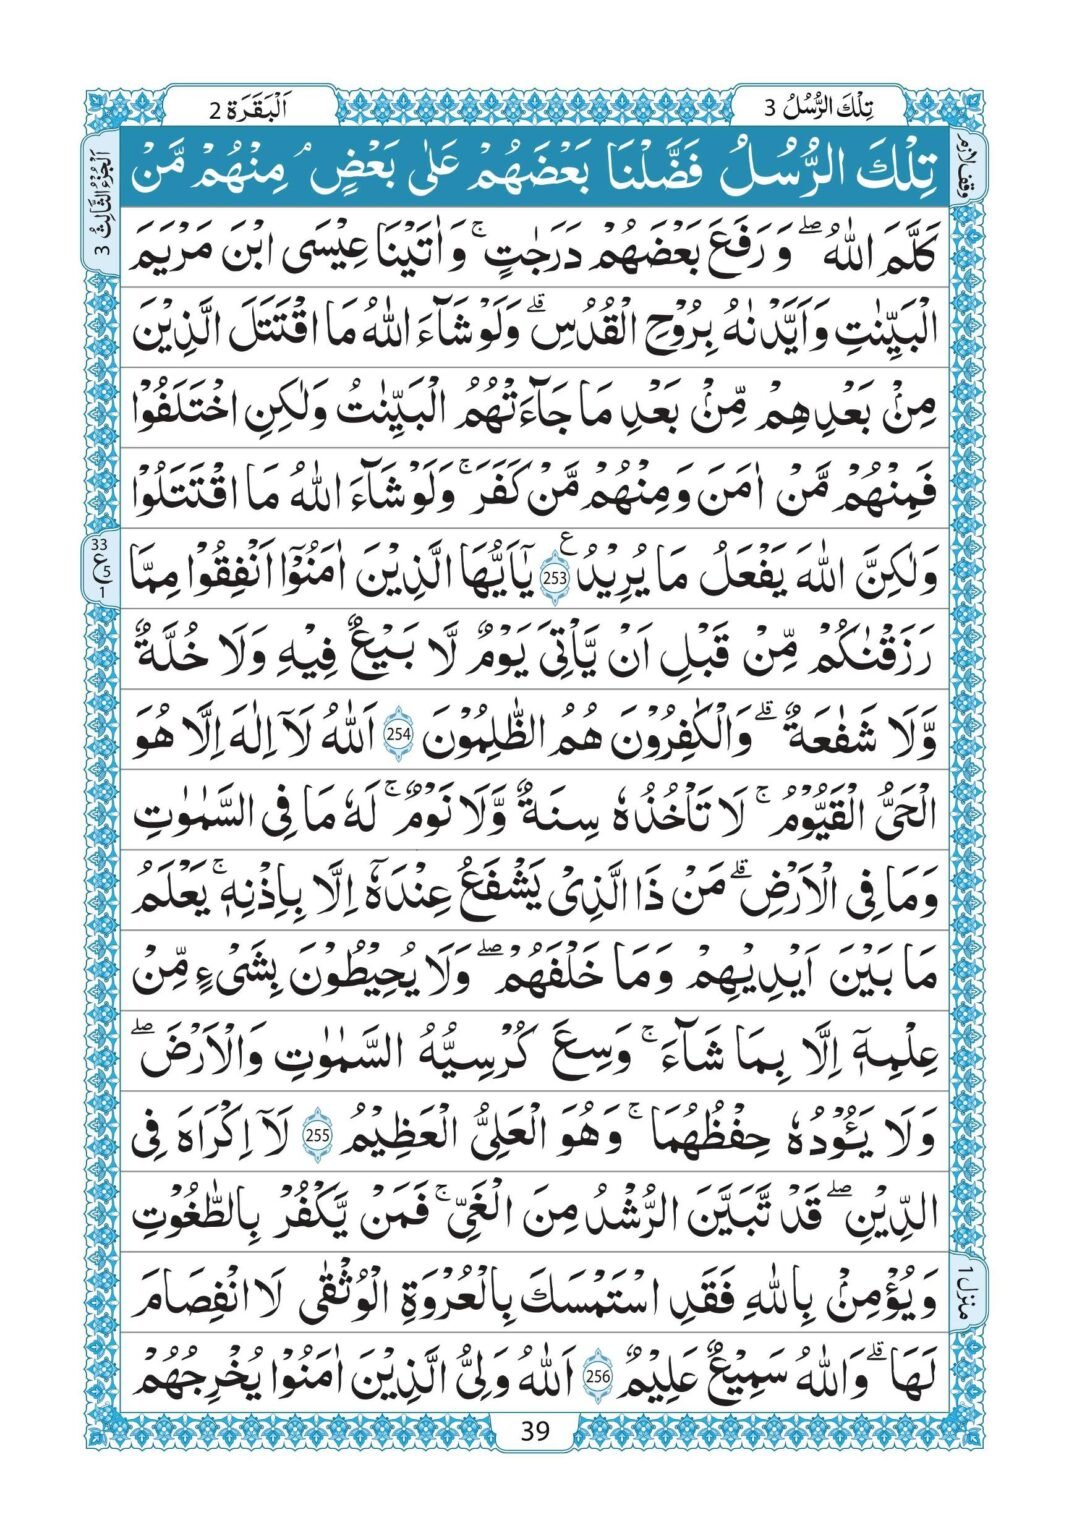 اَلْبَقَرَة 2
تِلْكَ الرُّسُلُ 3
وقف لازم
اَلْجُزْءُ الثَّالِثُ 3
تِلْكَ الرُّسُلُ فَضَّلْنَا بَعْضَهُمْ عَلٰى بَعْضٍ ۘ مِنْهُمْ مَّنْ
كَلَّمَ اللّٰهُ ۖ وَ رَفَعَ بَعْضَهُمْ دَرَجٰتٍ ۚ وَ اٰتَيْنَا عِيْسَى ابْنَ مَرْيَمَ
الْبَيِّنٰتِ وَ اَيَّدْنٰهُ بِرُوْحِ الْقُدُسِ ۗ وَلَوْ شَآءَ اللّٰهُ مَا اقْتَتَلَ الَّذِيْنَ
مِنْۢ بَعْدِهِمْ مِّنْۢ بَعْدِ مَا جَآءَتْهُمُ الْبَيِّنٰتُ وَلٰكِنِ اخْتَلَفُوْا
فَمِنْهُمْ مَّنْ اٰمَنَ وَمِنْهُمْ مَّنْ كَفَرَ ۚ وَلَوْ شَآءَ اللّٰهُ مَا اقْتَتَلُوْا
وَلٰكِنَّ اللّٰهَ يَفْعَلُ مَا يُرِيْدُ 253 ع يٰۤاَيُّهَا الَّذِيْنَ اٰمَنُوْۤا اَنْفِقُوْا مِمَّا
33
ع 5
1
رَزَقْنٰكُمْ مِّنْ قَبْلِ اَنْ يَّاْتِىَ يَوْمٌ لَّا بَيْعٌ فِيْهِ وَلَا خُلَّةٌ
وَّلَا شَفٰعَةٌ ۗ وَالْكٰفِرُوْنَ هُمُ الظّٰلِمُوْنَ 254 اَللّٰهُ لَاۤ اِلٰهَ اِلَّا هُوَ
الْحَىُّ الْقَيُّوْمُ ۚ لَا تَاْخُذُهٗ سِنَةٌ وَّلَا نَوْمٌ ۚ لَهٗ مَا فِى السَّمٰوٰتِ
وَمَا فِى الْاَرْضِ ۗ مَنْ ذَا الَّذِىْ يَشْفَعُ عِنْدَهٗۤ اِلَّا بِاِذْنِهٖ ۚ يَعْلَمُ
مَا بَيْنَ اَيْدِيْهِمْ وَمَا خَلْفَهُمْ ۖ وَلَا يُحِيْطُوْنَ بِشَىْءٍ مِّنْ
عِلْمِهٖۤ اِلَّا بِمَا شَآءَ ۚ وَسِعَ كُرْسِيُّهُ السَّمٰوٰتِ وَالْاَرْضَ ۖ
وَلَا يَـُٔوْدُهٗ حِفْظُهُمَا ۚ وَهُوَ الْعَلِىُّ الْعَظِيْمُ 255 لَاۤ اِكْرَاهَ فِى
الدِّيْنِ ۖ قَدْ تَّبَيَّنَ الرُّشْدُ مِنَ الْغَىِّ ۚ فَمَنْ يَّكْفُرْ بِالطَّاغُوْتِ
وَيُؤْمِنْۢ بِاللّٰهِ فَقَدِ اسْتَمْسَكَ بِالْعُرْوَةِ الْوُثْقٰى لَا انْفِصَامَ
منزل 1
لَهَا ۗ وَاللّٰهُ سَمِيْعٌ عَلِيْمٌ 256 اَللّٰهُ وَلِىُّ الَّذِيْنَ اٰمَنُوْا يُخْرِجُهُمْ
39